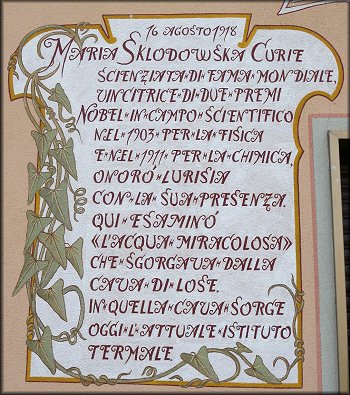 16 AGOSTO 1918
MARIA SKLODOWSKA CURIE
SCIENZIATA·DI·FAMA·MONDIALE,
VINCITRICE·DI·DUE·PREMI
NOBEL·IN·CAMPO·SCIENTIFICO
NEL·1903·PER·LA·FISICA
E·NEL·1911·PER·LA·CHIMICA,
ONORÓ·LURISIA
CON·LA·SUA·PRESENZA.
QUI·ESAMINÓ
«L'ACQUA·MIRACOLOSA»
CHE·SGORGAVA·DALLA
CAVA·DI·LOSE.
IN·QUELLA·CAVA·SORGE
OGGI·L'ATTUALE·ISTITUTO
TERMALE